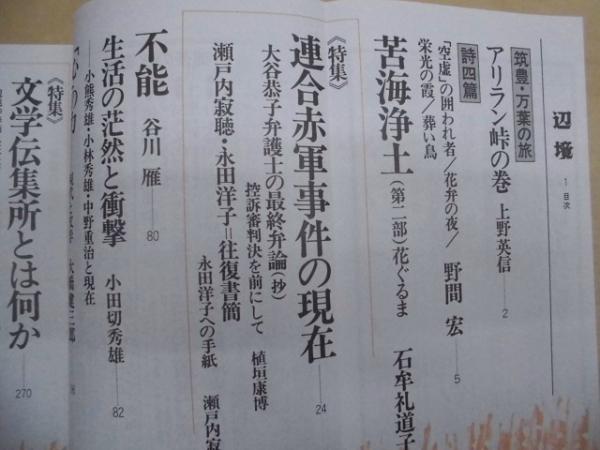 辺境
1 目次
筑豊・万葉の旅
アリラン峠の巻 上野英信 2
詩四篇
「空虚」の囲われ者/花弁の夜/
栄光の霞/葬い鳥
野間 宏 5
苦海浄土(第二部)花ぐるま 石牟礼道子
《特集》
連合赤軍事件の現在 24
大谷恭子弁護士の最終弁論(抄)
控訴審判決を前にして 植垣康博
瀬戸内寂聴・永田洋子=往復書簡
永田洋子への手紙 瀬戸内寂
不能 谷川 雁 80
生活の茫然と衝撃 小田切秀雄 82
小熊秀雄・小林秀雄・中野重治と現在
《特集》
文学伝集所とは何か 270